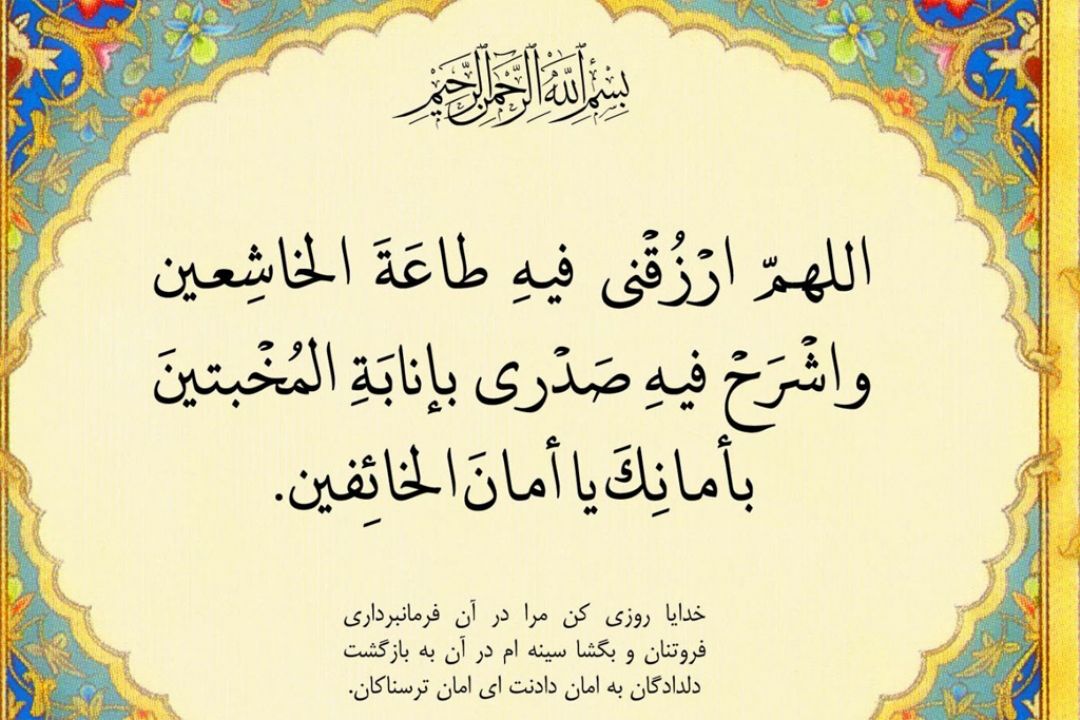 بِسْمِ اللهِ الرَّحْمنِ الرَّحيمِ
اللهمّ ارْزُقْنی فیهِ طاعَةَ الخاشِعین
واشْرَحْ فیهِ صَدْری بإنابَةِ المُخْبتینَ
بأمانِكَ یا أمانَ الخائِفین.
خدایا روزی کن مرا در آن فرمانبرداری
فروتنان و بگشا سینه ام در آن به بازگشت
دلدادگان به امان دادنت ای امان ترسناکان.